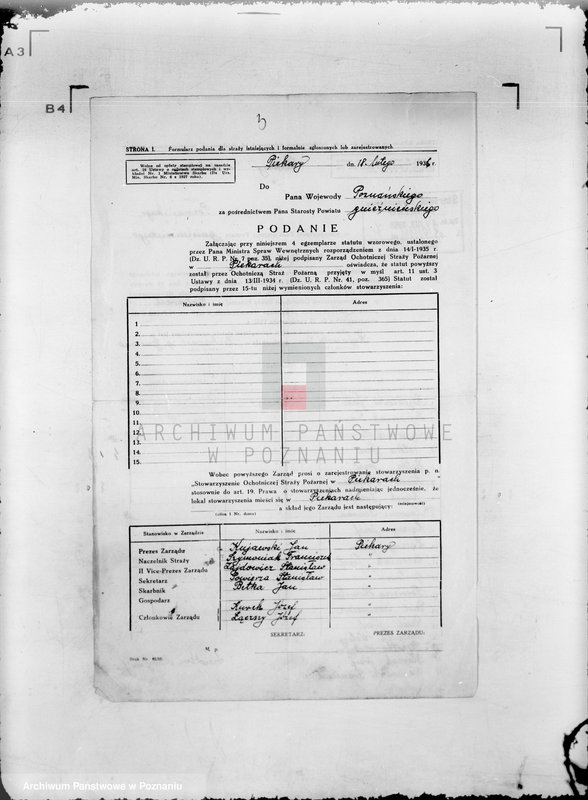 A3
B4
3
STRONA I. Formularz podania dla straży istniejących i formalnie zgłoszonych lub zarejestrowanych
Wolne od opłaty stemplowej na zasadzie
art. 16 Ustawy o opłatach stemplowych i o-
kólnika Nr. 1 Ministerstwa Skarbu (Dz. Urz.
Min. Skarbu Nr. 4 z 1927 roku).
Piekary dn. 18. lutego 1936 r.
Do
Pana Wojewody Poznańskiego
za pośrednictwem Pana Starosty Powiatu gnieźnieńskiego
PODANIE
Załączając przy niniejszem 4 egzemplarze statutu wzorowego, ustalonego
przez Pana Ministra Spraw Wewnętrznych rozporządzeniem z dnia 14/I-1935 r.
(Dz. U. R. P. Nr. 7 poz. 35), niżej podpisany Zarząd Ochotniczej Straży Pożarnej
w Piekarach oświadcza, że statut powyższy
został przez Ochotniczą Straż Pożarną przyjęty w myśl art. 11 ust. 3
Ustawy z dnia 13/III-1934 r. (Dz. U. R. P. Nr. 41, poz. 365) Statut został
podpisany przez 15-tu niżej wymienionych członków stowarzyszenia:
Nazwisko i imię Adres
1
2.
3.
4.
5.
6.
7.
8.
9.
10.
11.
12.
13.
14.
15.
ARCHIWUM PAŃSTWOWE
W POZNANIU
Wobec powyższego Zarząd prosi o zarejestrowanie stowarzyszenia p. n.
„Stowarzyszenie Ochotniczej Straży Pożarnej w Piekarach
stosownie do art. 19. Prawa o stowarzyszeniach nadmieniając jednocześnie, że
lokal stowarzyszenia mieści się w Piekarach
(miejscowość)
a skład jego Zarządu jest następujący:
(ulica i Nr. domu)
Stanowisko w Zarządzie Nazwisko i imię Adres
Prezes Zarządu Kujawski Jan Piekary
Naczelnik Straży Szymoniak Franciszek "
II Vice-Prezes Zarządu Stanisław "
Sekretarz Stanisław "
Skarbnik Betka Jan "
Gospodarz
Kurek Józef "
Członkowie Zarządu Józef "
SEKRETARZ: PREZES ZARZĄDU:
M. p.
Druk Nr. 82/35.
Archiwum Panstwowe w Poznaniu